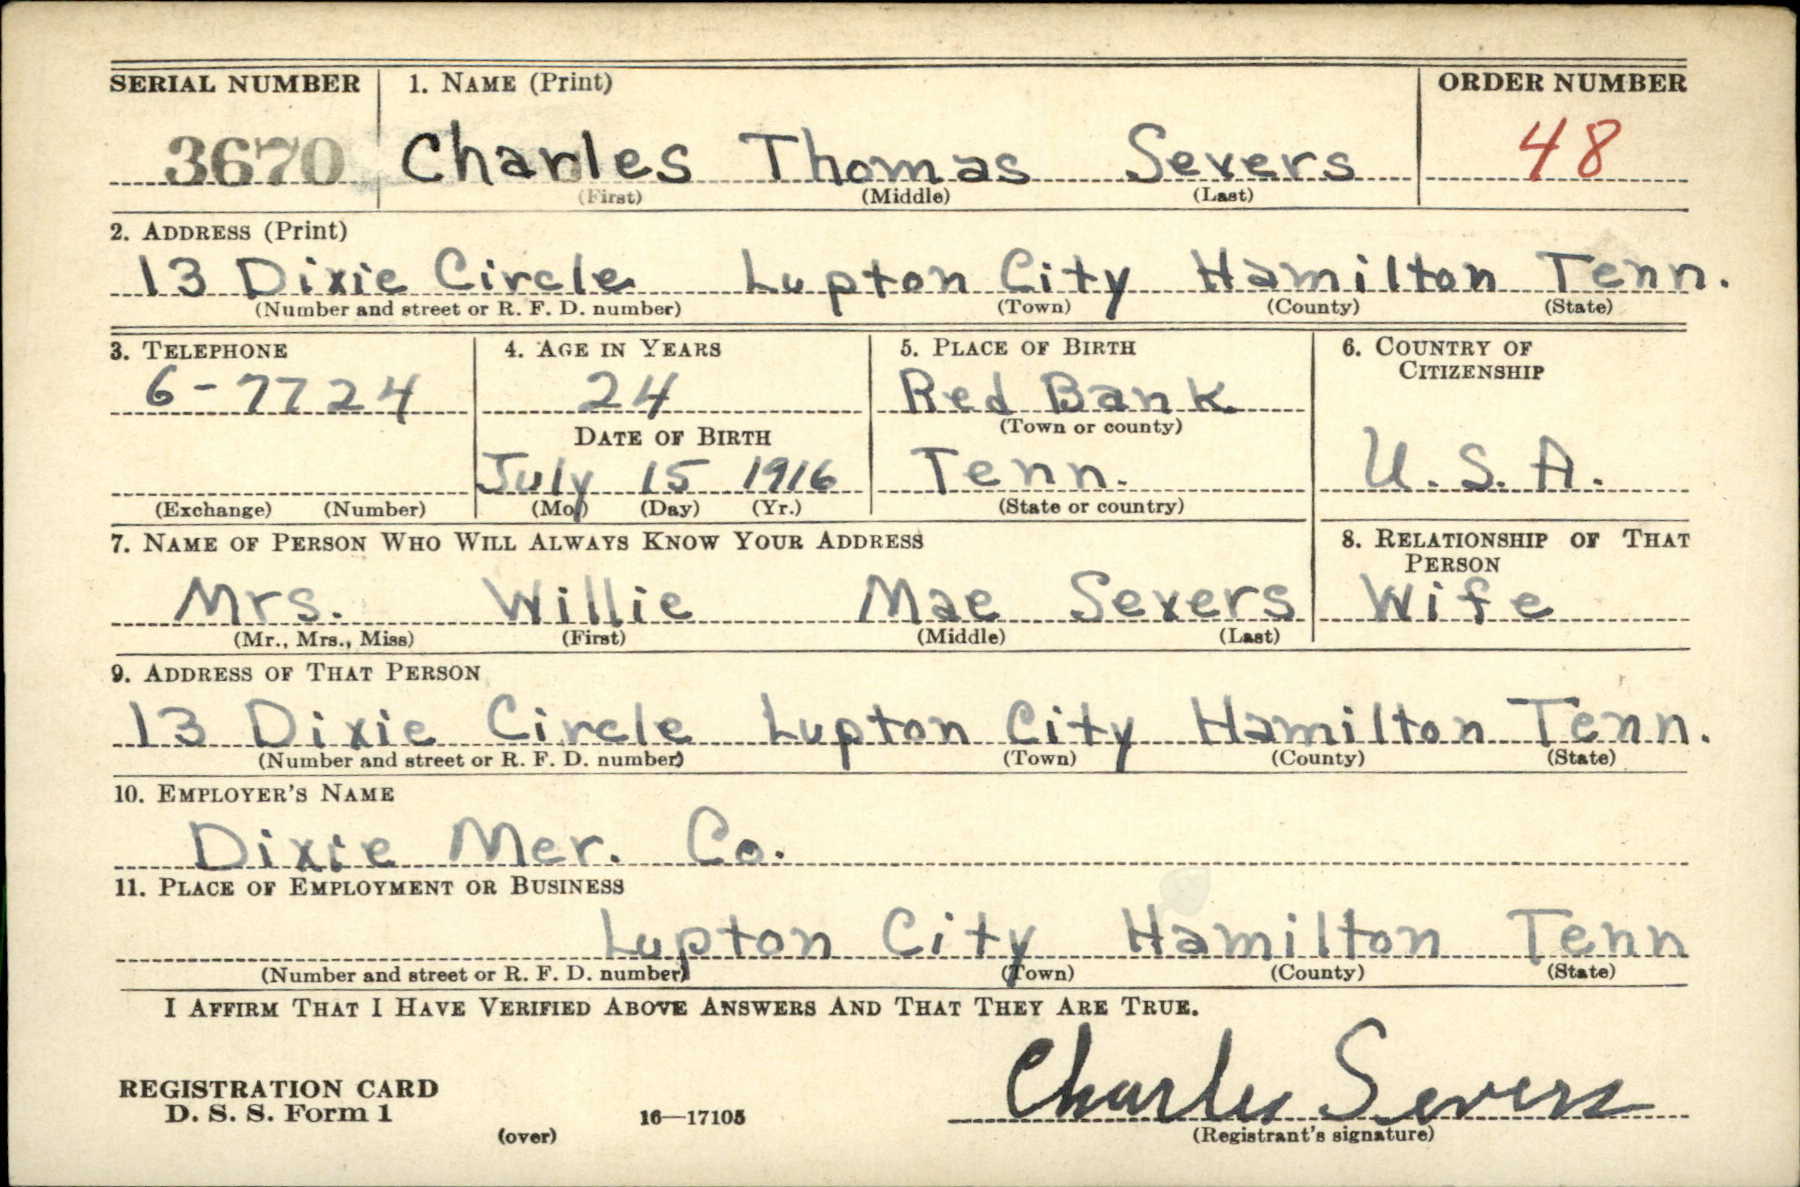 SERIAL NUMBER 1. NAME (Print) ORDER NUMBER
3670 Charles Thomas Severs 48
(First) (Middle) (Last)
2. ADDRESS (Print)
13 Dixie Circle Lupton City Hamilton Tenn.
(Number and street or R. F. D. number) (Town) (County) (State)
3. TELEPHONE 4. AGE IN YEARS 5. PLACE OF BIRTH 6. COUNTRY OF
CITIZENSHIP
6-7724 24 Red Bank
(Town or county)
DATE OF BIRTH
July 15 1916 Tenn. U.S.A.
(Exchange) (Number) (Mo.) (Day) (Yr.) (State or country)
7. NAME OF PERSON WHO WILL ALWAYS KNOW YOUR ADDRESS 8. RELATIONSHIP OF THAT
PERSON
Mrs. Willie Mae Severs Wife
(Mr., Mrs., Miss) (First) (Middle) (Last)
9. ADDRESS OF THAT PERSON
13 Dixie Circle Lupton City Hamilton Tenn.
(Number and street or R. F. D. number) (Town) (County) (State)
10. EMPLOYER'S NAME
Dixie Mer. Co.
11. PLACE OF EMPLOYMENT OR BUSINESS
Lupton City Hamilton Tenn
(Number and street or R. F. D. number) (Town) (County) (State)
I AFFIRM THAT I HAVE VERIFIED ABOVE ANSWERS AND THAT THEY ARE TRUE.
Charles Severs
REGISTRATION CARD
D. S. S. Form 1 16—17105
(over) (Registrant's signature)